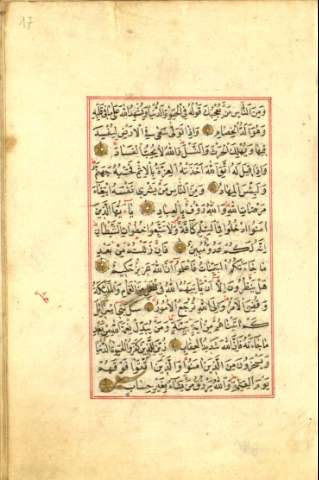 17
وَمِنَ النَّاسِ مَنْ يُعْجِبُكَ قَوْلُهُ فِي الْحَيٰوةِ الدُّنْيَا وَيُشْهِدُ اللّٰهَ عَلٰى مَا فِي قَلْبِهِ
وَهُوَ اَلَدُّ الْخِصَامِ وَاِذَا تَوَلّٰى سَعٰى فِي الْاَرْضِ لِيُفْسِدَ
فِيهَا وَيُهْلِكَ الْحَرْثَ وَالنَّسْلَ وَاللّٰهُ لَا يُحِبُّ الْفَسَادَ
وَاِذَا قِيلَ لَهُ اتَّقِ اللّٰهَ اَخَذَتْهُ الْعِزَّةُ بِالْاِثْمِ فَحَسْبُهُ جَهَنَّمُ
وَلَبِئْسَ الْمِهَادُ وَمِنَ النَّاسِ مَنْ يَشْرِي نَفْسَهُ ابْتِغَاءَ
مَرْضَاتِ اللّٰهِ وَاللّٰهُ رَؤُفٌ بِالْعِبَادِ يَا اَيُّهَا الَّذِينَ
اٰمَنُوا ادْخُلُوا فِي السِّلْمِ كَافَّةً وَلَا تَتَّبِعُوا خُطُوَاتِ الشَّيْطَانِ
اِنَّهُ لَكُمْ عَدُوٌّ مُبِينٌ فَاِنْ زَلَلْتُمْ مِنْ بَعْدِ
مَا جَاءَتْكُمُ الْبَيِّنَاتُ فَاعْلَمُوا اَنَّ اللّٰهَ عَزِيزٌ حَكِيمٌ
هَلْ يَنْظُرُونَ اِلَّا اَنْ يَأْتِيَهُمُ اللّٰهُ فِي ظُلَلٍ مِنَ الْغَمَامِ وَالْمَلٰئِكَةُ
وَقُضِيَ الْاَمْرُ وَاِلَى اللّٰهِ تُرْجَعُ الْاُمُورُ سَلْ بَنِي اِسْرَائِيلَ
كَمْ اٰتَيْنَاهُمْ مِنْ اٰيَةٍ بَيِّنَةٍ وَمَنْ يُبَدِّلْ نِعْمَةَ اللّٰهِ مِنْ بَعْدِ
مَا جَاءَتْهُ فَاِنَّ اللّٰهَ شَدِيدُ الْعِقَابِ زُيِّنَ لِلَّذِينَ كَفَرُوا الْحَيٰوةُ الدُّنْيَا
وَيَسْخَرُونَ مِنَ الَّذِينَ اٰمَنُوا وَالَّذِينَ اتَّقَوْا فَوْقَهُمْ
يَوْمَ الْقِيٰمَةِ وَاللّٰهُ يَرْزُقُ مَنْ يَشَاءُ بِغَيْرِ حِسَابٍ